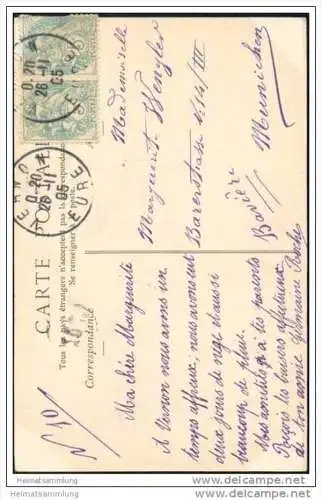 CARTE POSTALE
Tous les pays étrangers n'acceptent pas la correspondance
Se renseigner à la poste.
Correspondance
N° 10
VERNON
0-20
26-11
05
EURE
0-20
26-11
05
EURE
Ma chère Marguerite
A Vernon nous avons un
temps affreux; nous avons eut
deux jours de neige et aussi
beaucoup de pluie.
Mes amitiés à tes parents
Reçois les baisers affectueux
de ton amie Germaine
Mademoiselle
Marguerite Wengler
Barerstrasse
Bavière
Munichen
Heimatsammlung
Heimatsammlung
www.delcampe.net